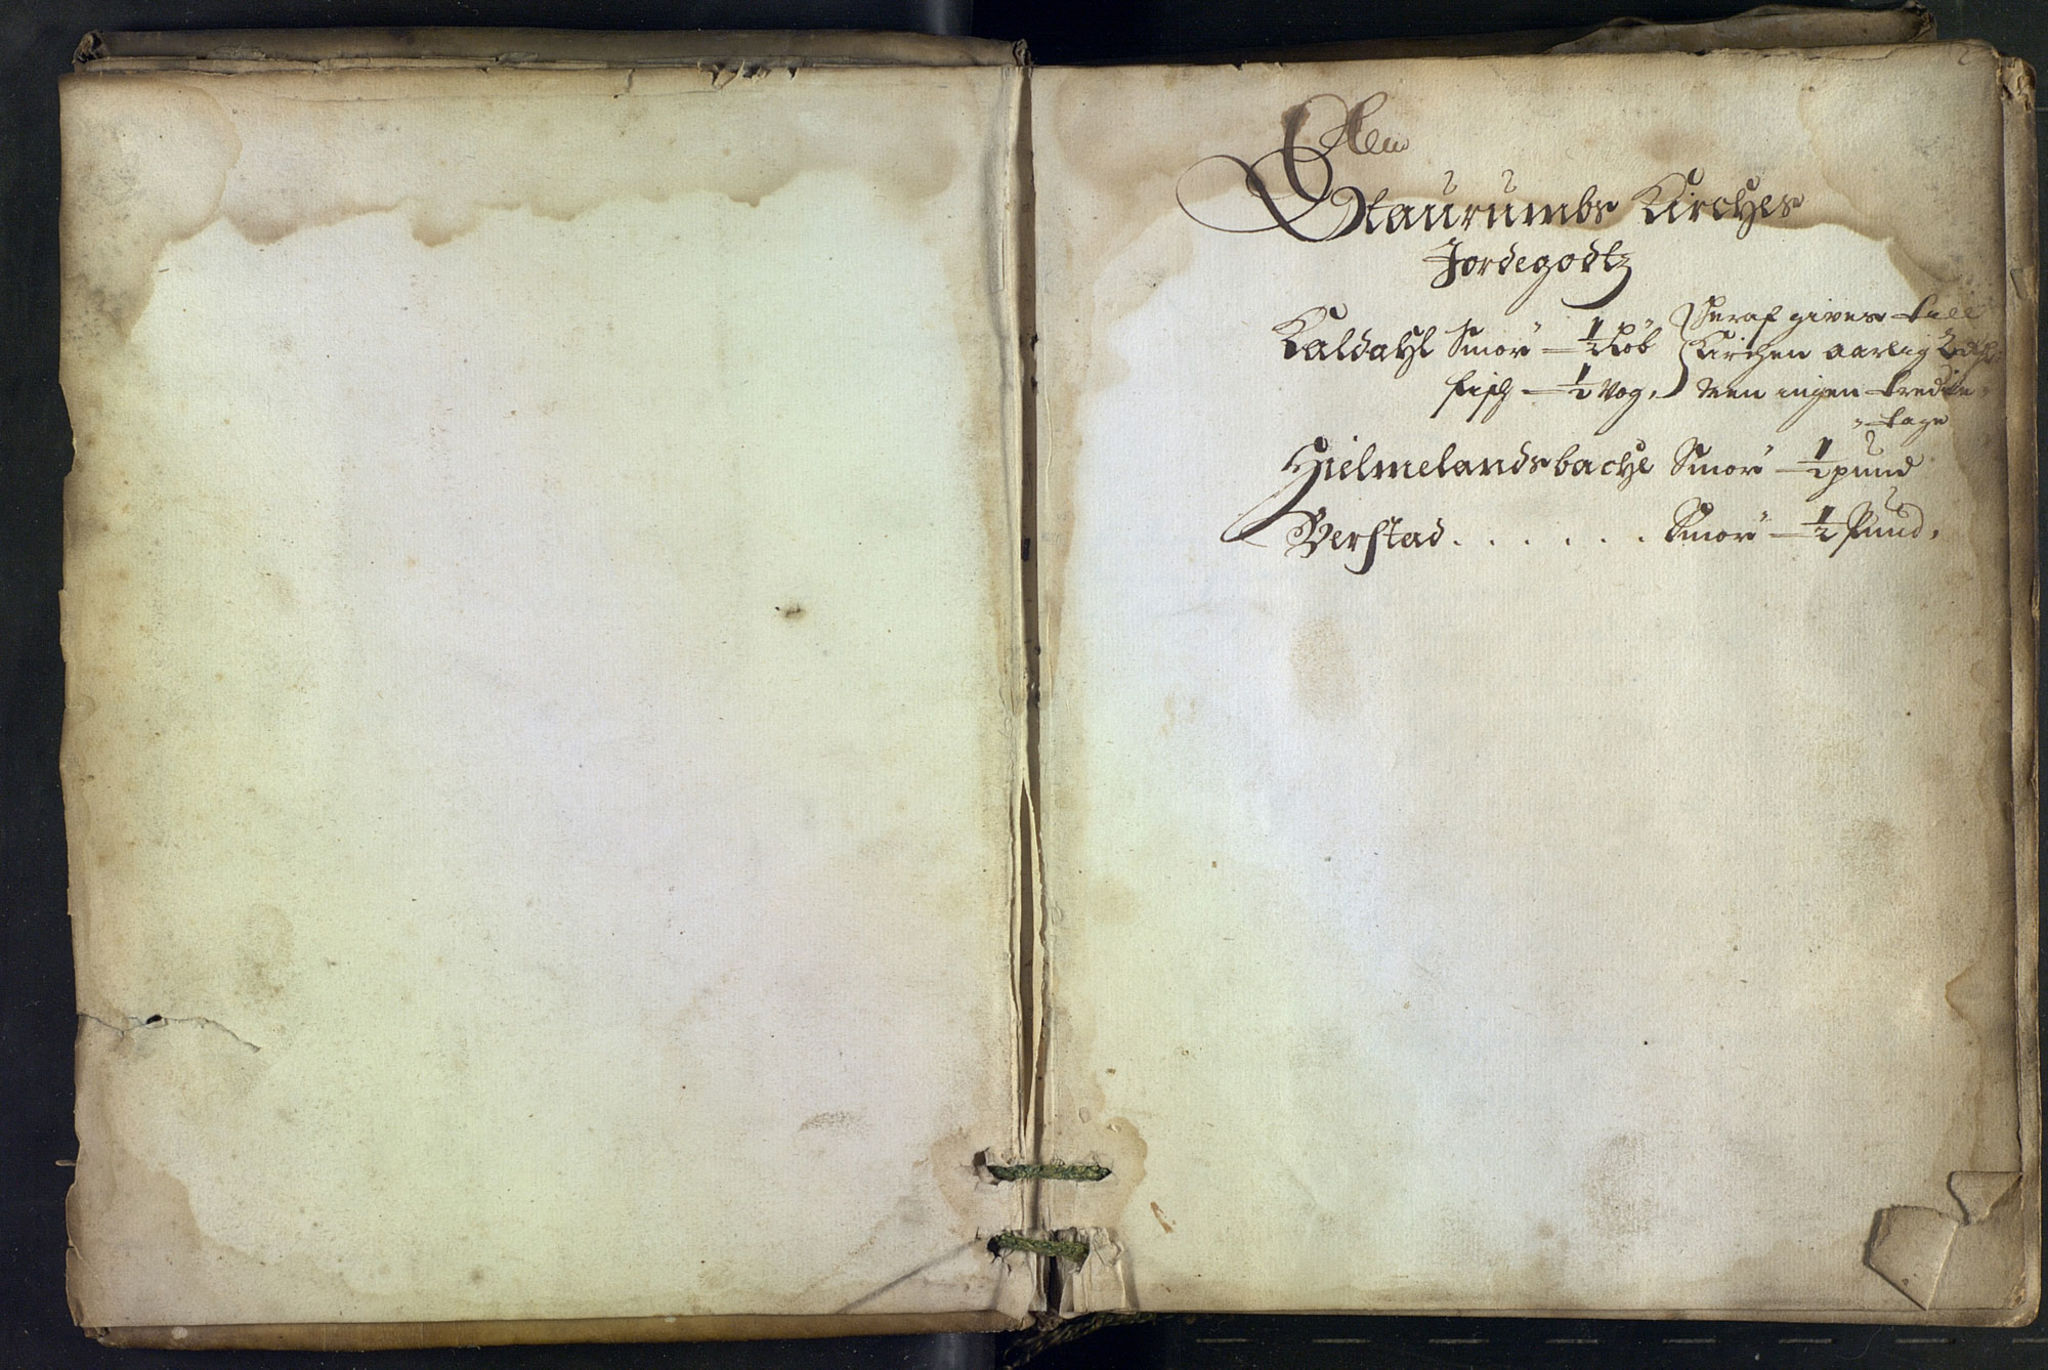 2
Staurumbs Kirches
Jordegodtz
Kaldahl Smör — 1/2 Löb
fisch — 1/2 Vog.
Heraf gives till
Kirchen aarlig
Men ingen tredie-
-tage
Hielmelandsbache Smör — 1/2 pund
Berstad . . . . . . Smör — 1/2 Pund.